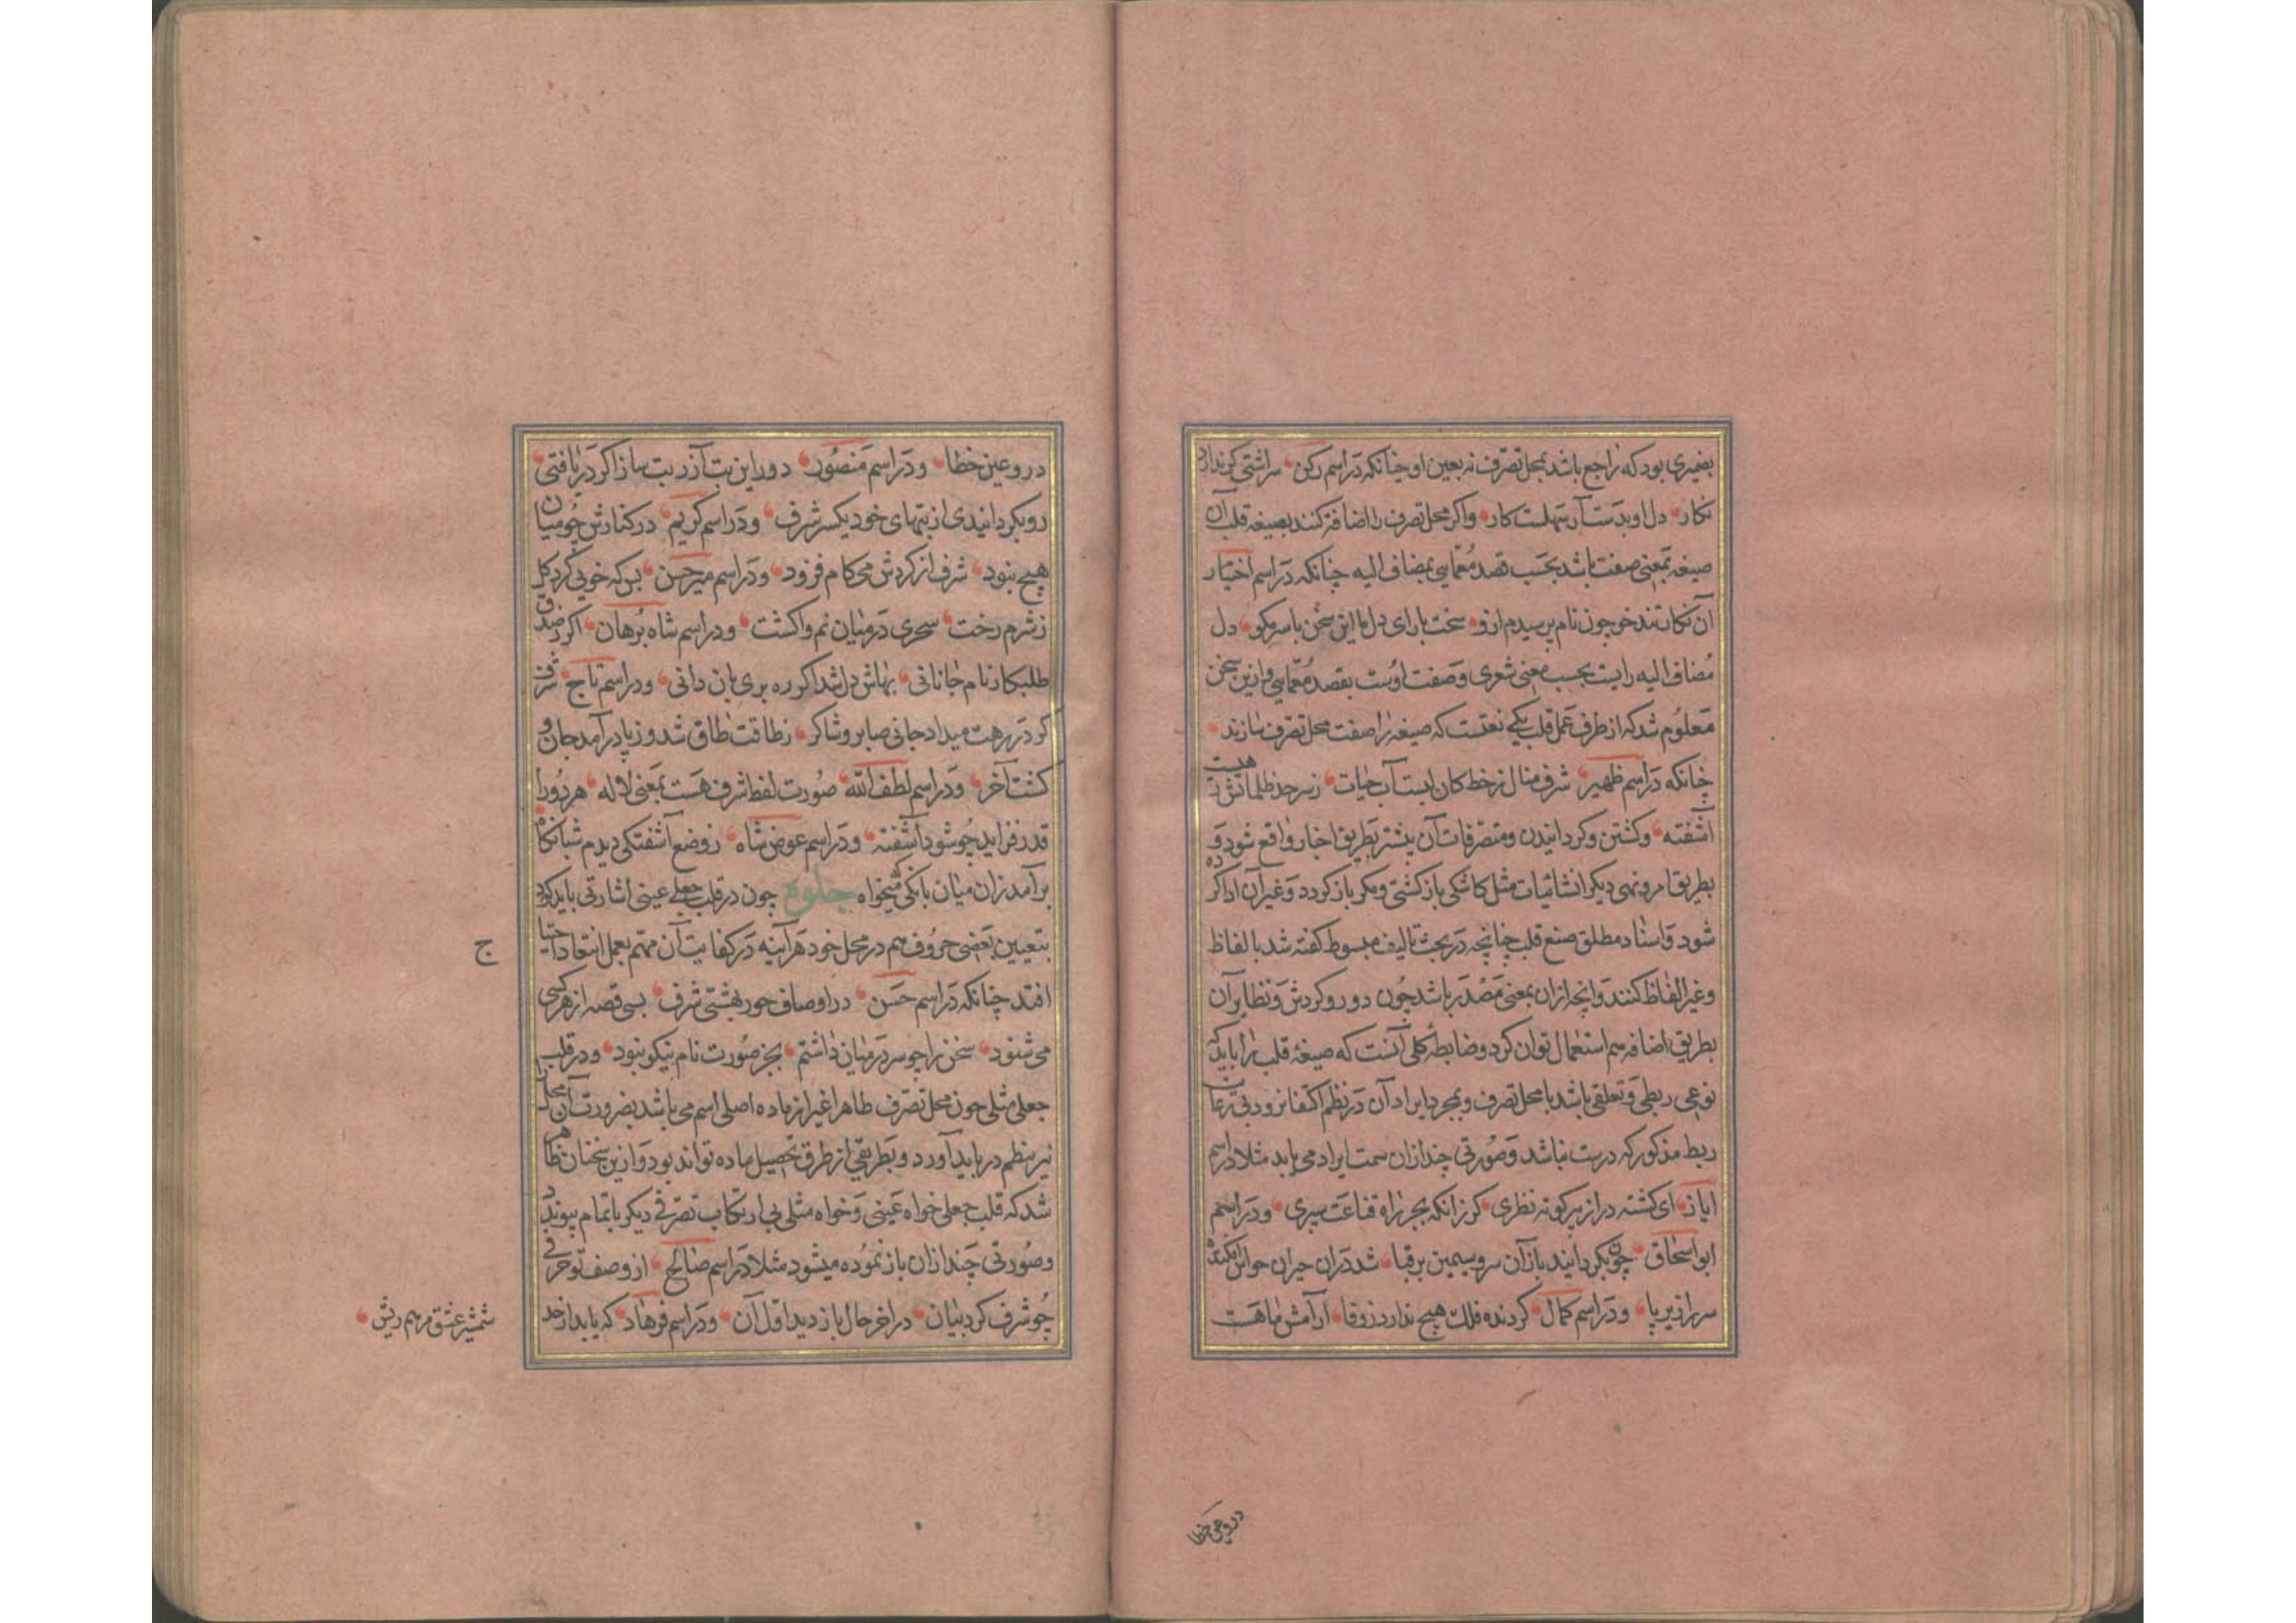 بضمیری بود که راجع باشد بمحل تصرف نه بعین او چنانکه در اسم رکن سر اشتی کر ندارد
نکار دل او بدست آر سهلست کار واکر محل تصرف را اضافة کنند بصیغه قلب آن
صیغه بمعنی صفت باشد بحسب قصد معمایی بمضاف الیه چنانکه در اسم اختیار
آن نکار تند خو چون نام پرسیدم ازو سخت بارای دل ما این سخن با سر مکو دل
مضاف الیه رایست بحسب معنی شعری وصفت اوست بقصد معمایی وازین سخن
معلوم شد که از طرف عمل قلب یکی نعتست که صیغه را صفت محل تصرف سازند
چنانکه در اسم ظهیر شرف منال ز خط کان لبست آب حیات ز سر حد ظلماتش هست
آشفته وکشتن وکردانیدن ومتصرفات آن بیشتر بطریق اخبار واقع شود و
بطریق امر ونهی دیکر انشائیات مثل کاشکی باز کشتی ومکر باز کردد وغیر آن ادا کرده
شود واسناد مطلق صنع قلب چنانچه در بحث تالیف مبسوط کفته شد بالفاظ
وغیر الفاظ کنند وانچه ازان بمعنی مصدر باشد چون دور وکردش ونظایر آن
بطریق اضافه هم استعمال توان کرد وضابطه کلی آنست که صیغه قلب را باید که
نوعی ربطی وتعلقی باشد با محل تصرف وبمجرد ایراد آن در نظم اکتفا نرود بی رعایت
ربط مذکور که درست نباشد وصورتی چند ازان سمت ایراد می یابد مثلا در اسم
ایاز ای کشته دراز بر کوته نظری کر زانکه بجز راه قناعت سپری ودر اسم
ابو اسحاق چون بکردانید باز آن سرو سیمین بر قبا شد دران حیران حواس
سر از زیر پا ودر اسم کمال کردنده فلک هیچ ندارد ز وفا آرامش ما هست
در وعین خطا
در وعین خطا ودر اسم منصور دور این بت آزر بت ساز اکر دریافتی
رو بکردانیدی از بتهای خود یکسر شرف ودر اسم کریم در کنارش چو میان
هیچ نبود شرف از کردش می کام فزود ودر اسم میر حسن بس که خوی کرد کل
ز شرم رخت سحری در میان نم واکشت ودر اسم شاه برهان اکر صدق
طلبکار نام جانانی بهاش دل شد اکر ره بری بان دانی ودر اسم تاج شرف
کر در رهت میداد جانی صابر وشاکر ز طاقت طاق شد وز پا در آمد جان و
کشت آخر ودر اسم لطف الله صورت لفظ شرف هست بمعنی لاله هر دورا
قدر فزاید چو شود آشفته ودر اسم عوض شاه ز وضع آشفتکی دیدم شبانکاه
برآمد زان میان بانکی که میخواه جلوه چون در قلب جعلی عینی اشارتی باید کرد
بتعیین بعضی حروف هم در محل خود هر آینه در کفایت آن مهم بعمل انتقاد احتیاج
افتد چنانکه در اسم حسن در اوصاف حور بهشتی شرف بسی قصه از هر کسی
می شنود سخن را چو سر در میان داشتم بجز صورت نام نیکو نبود ودر قلب
جعلی مثلی چون محل تصرف ظاهرا غیر از ماده اصلی اسم می باشد بضرورت آن محل را
نیز بنظم در باید آورد وبطریقی از طرق تحصیل ماده تواند بود وازین سخنان ظاهر
شد که قلب جعلی خواه عینی وخواه مثلی بی ارتکاب تصرفی دیکر باتمام پیوندد
وصورتی چند ازان باز نموده میشود مثلا در اسم صالح از وصف تو حرفی
چو شرف کرد بیان در اخر حال باز دید اول آن ودر اسم فرهاد که یابد از خد
شمشیر عشق مرهم ریش